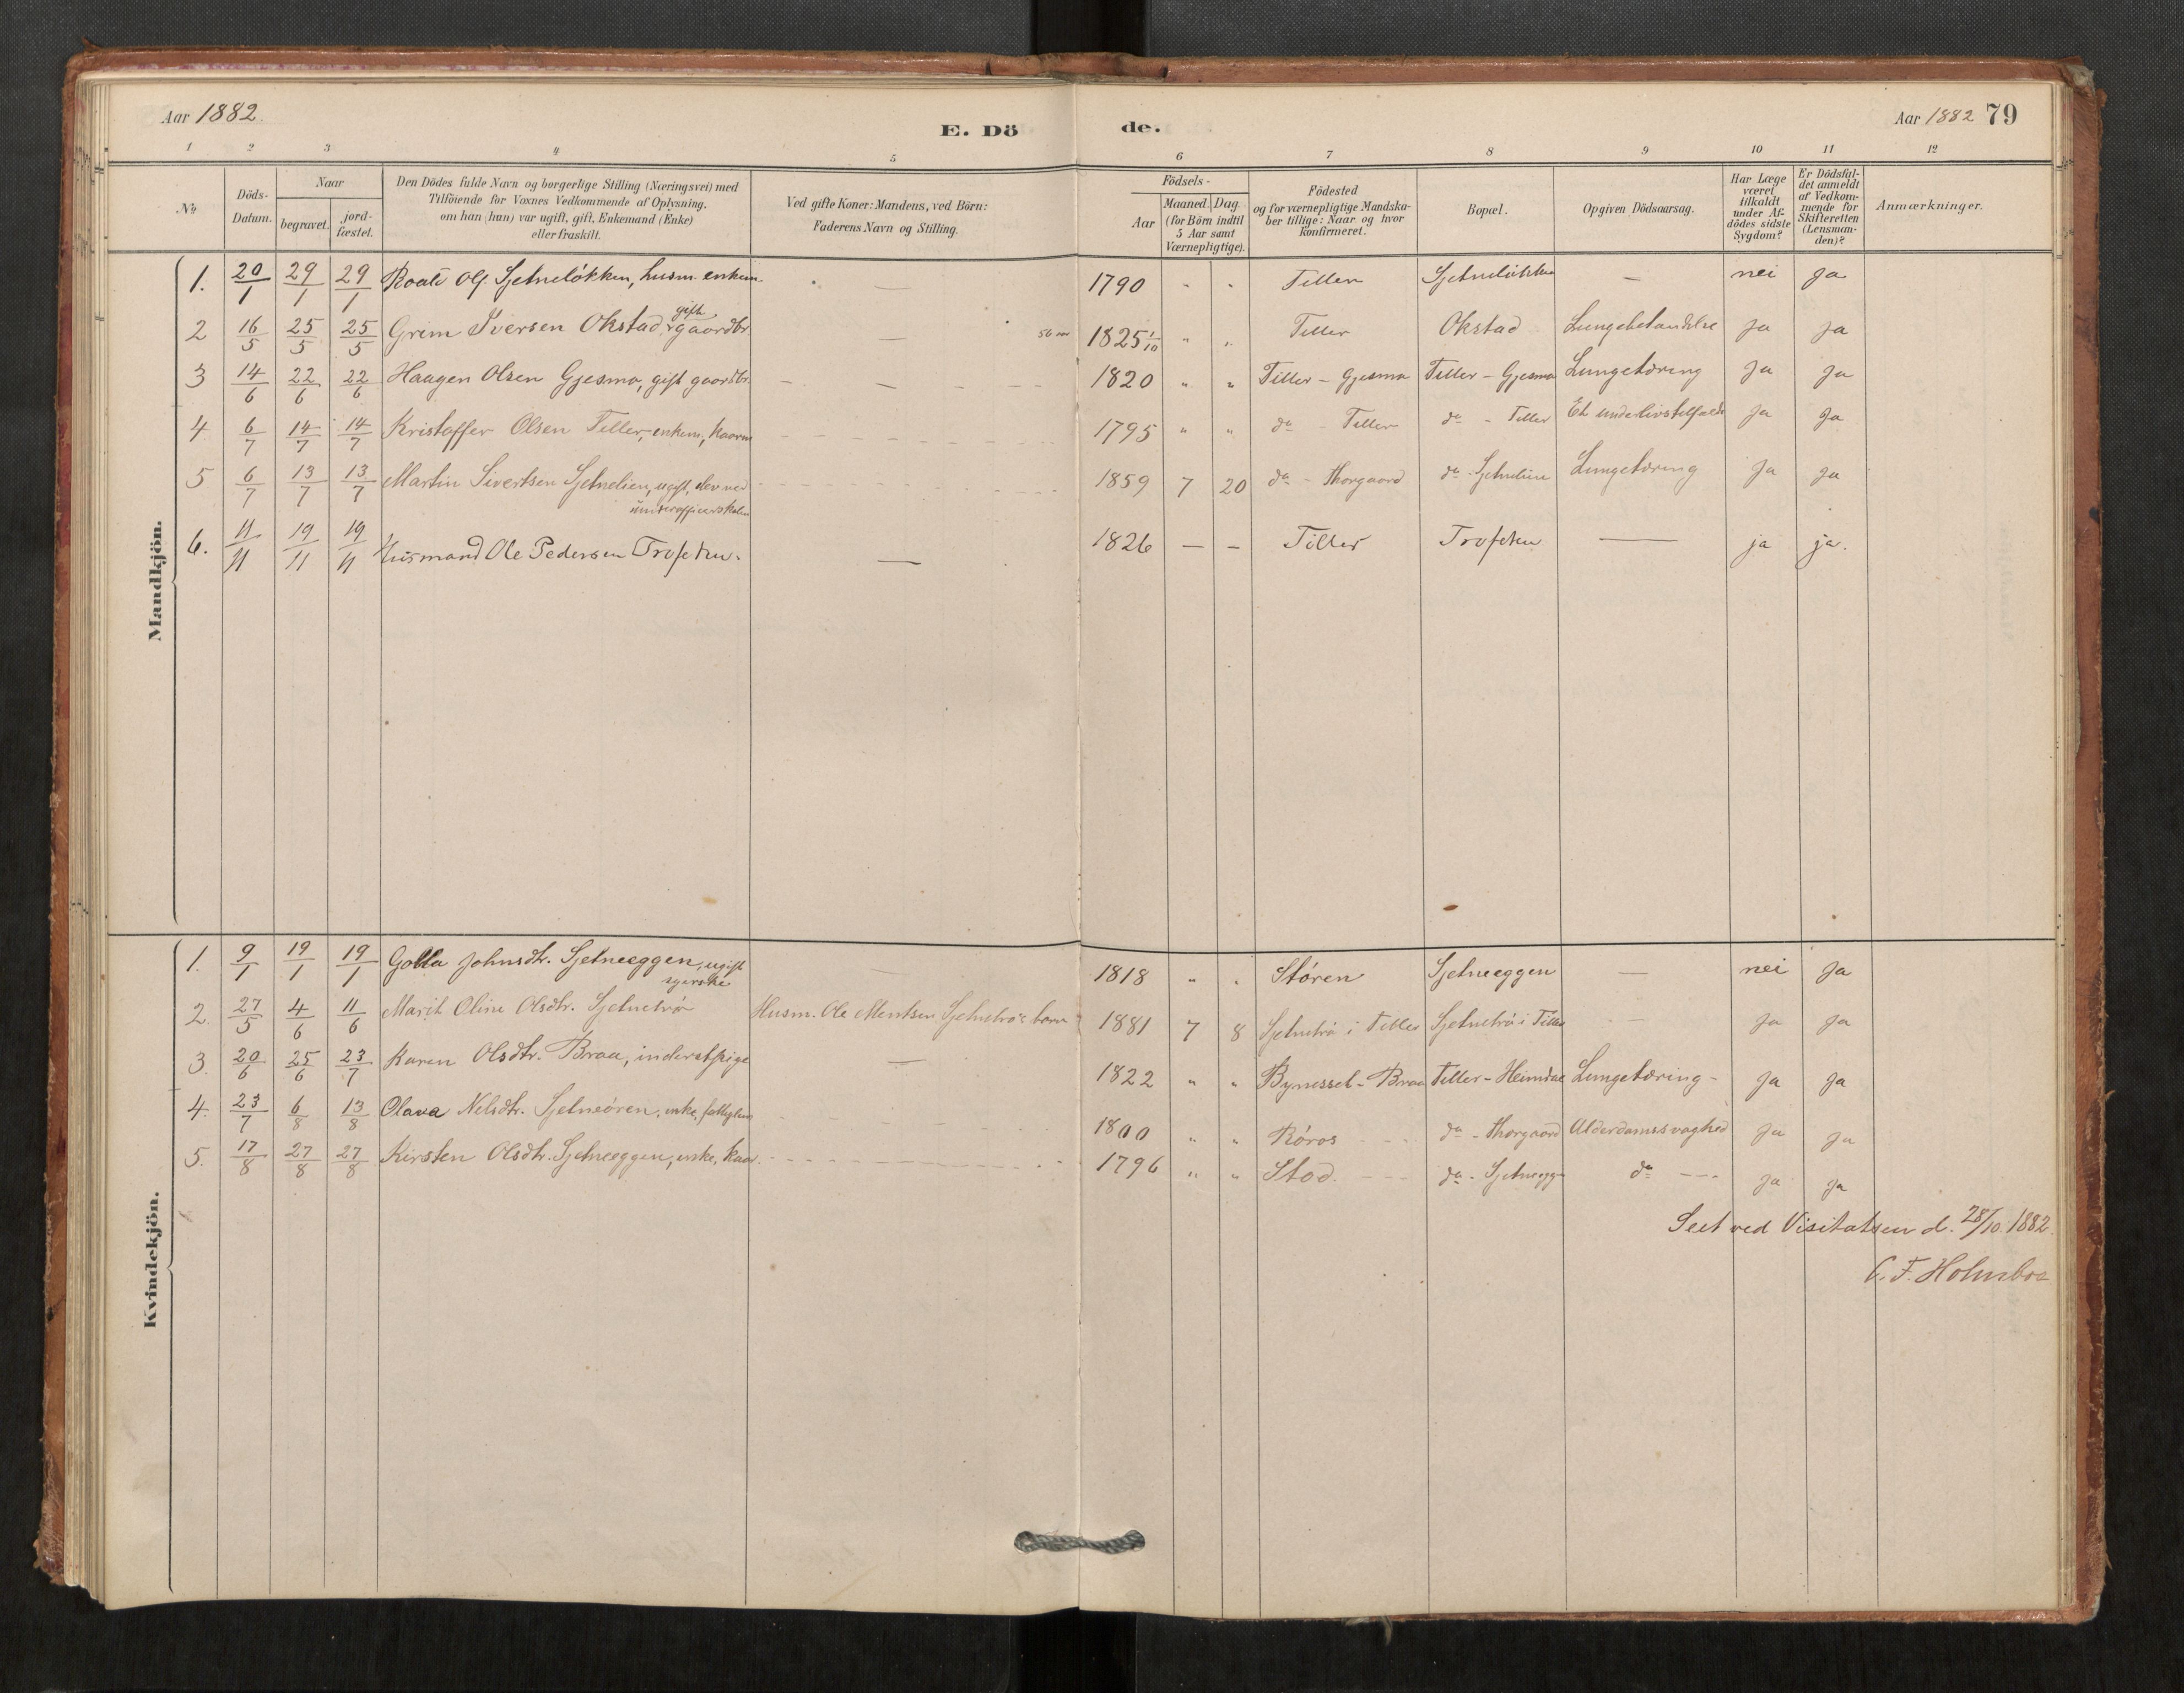 Aar 1882.
E. Dö
de.
Aar 1882 79
1 2 3 4 5 6 7 8 9 10 11 12
No
Döds-Datum.
Naar
begravet.
jord-fæstet.
Den Dödes fulde Navn og borgerlige Stilling (Næringsvei) med
Tilföiende for Voxnes Vedkommende af Oplysning,
om han (hun) var ugift, gift, Enkemand (Enke)
eller fraskilt.
Ved gifte Koner: Mandens, ved Börn:
Faderens Navn og Stilling.
Födsels-
Aar
Maaned. Dag.
(for Börn indtil
5 Aar samt
Værnepligtige).
Födested
og for værnepligtige Mandska-
ber tillige: Naar og hvor
konfirmeret.
Bopæl.
Opgiven Dödsaarsag.
Har Læge
været
tilkaldt
under Af-
dödes sidste
Sygdom?
Er Dödsfal-
det anmeldt
af Vedkom-
mende for
Skifteretten
(Lensman-
den)?
Anmærkninger.
Mandkjön.
1. 20/1 29/1 29/1 Roald Ols. Sjetneløkken, husm. enkem. — 1790 - - Tiller Sjetneløkken — nei ja
2 16/5 25/5 25/5 Grim Iversen Okstad, gift gaardbr — 56 1825 1/10 " " Tiller Okstad Lungebetændelse ja ja
3 14/6 22/6 22/6 Haagen Olsen Gjesmo, gift gaardbr. — 1820 " " Tiller - Gjesmo Tiller - Gjesmo Lungetæring ja ja
4 6/7 14/7 14/7 Kristoffer Olsen Tiller, enkem, kaarm 1795 " " do - Tiller do - Tiller Et underlivstilfælde ja ja
5 6/7 13/7 13/7 Martin Sivertsen Sjetnelien, ugift, elev ved
underofficerskolen 1859 7 20 do - Thorgaard do - Sjetnelien Lungetæring ja ja
6. 11/11 19/11 19/11 Husmand Ole Pedersen Trofeten. — 1826 — — Tiller Trofeten — ja ja.
Kvindekjön.
1. 9/1 19/1 19/1 Golla Johnsdtr. Sjetneeggen, ugift
syerske — 1818 " " Støren Sjetneeggen — nei ja
2. 27/5 4/6 11/6 Marit Oline Olsdtr. Sjetnetrø Husm. Ole Mentsen Sjetnetrø's barn 1881 7 8 Sjetnetrø i Tiller Sjetnetrø i Tiller — ja ja
3. 20/6 25/6 23/7 Karen Olsdtr. Braa, inderstpige — 1822 " " Bynesset - Braa Tiller - Heimdal Lungetæring - ja ja
4. 23/7 6/8 13/8 Olava Nelsdtr. Sjetneøren, enke, fattiglem 1800 " " Røros do - Thorgaard Alderdomssvaghed ja ja
5. 17/8 27/8 27/8 Kirsten Olsdtr. Sjetneeggen, enke, kaar. 1796 " " Stod. do - Sjetneegg do — ja ja
Seet ved Visitatsen d. 28/10. 1882.
C. F. Holmboe